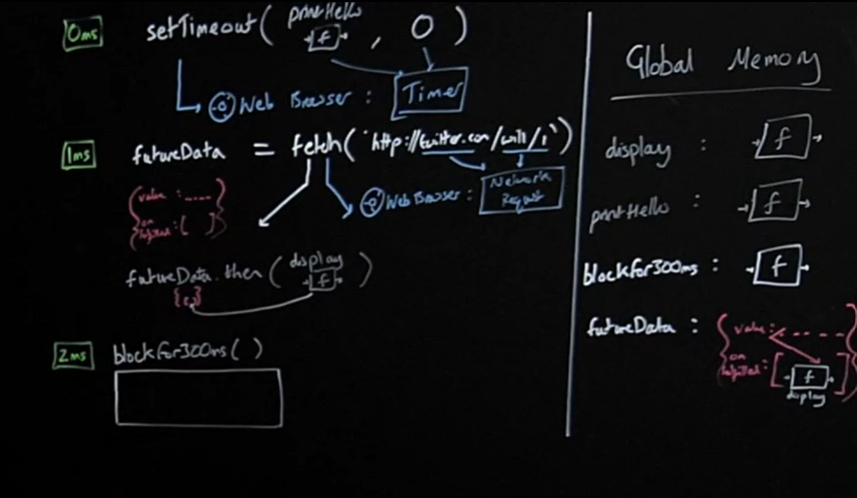 0ms setTimeout( printHello f , 0 )
Web Browser : Timer
1ms futureData = fetch('http://twitter.com/will/1')
Web Browser : Network Request
{ value : .....
on fulfilled : [ ] }
futureData.then( display f )
2ms blockfor300ms( )
Global Memory
display : f
printHello : f
blockfor300ms : f
futureData : { value : - - - - -
on fulfilled : [ f ] }
display